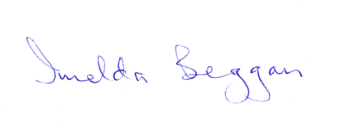 Imelda Beggan